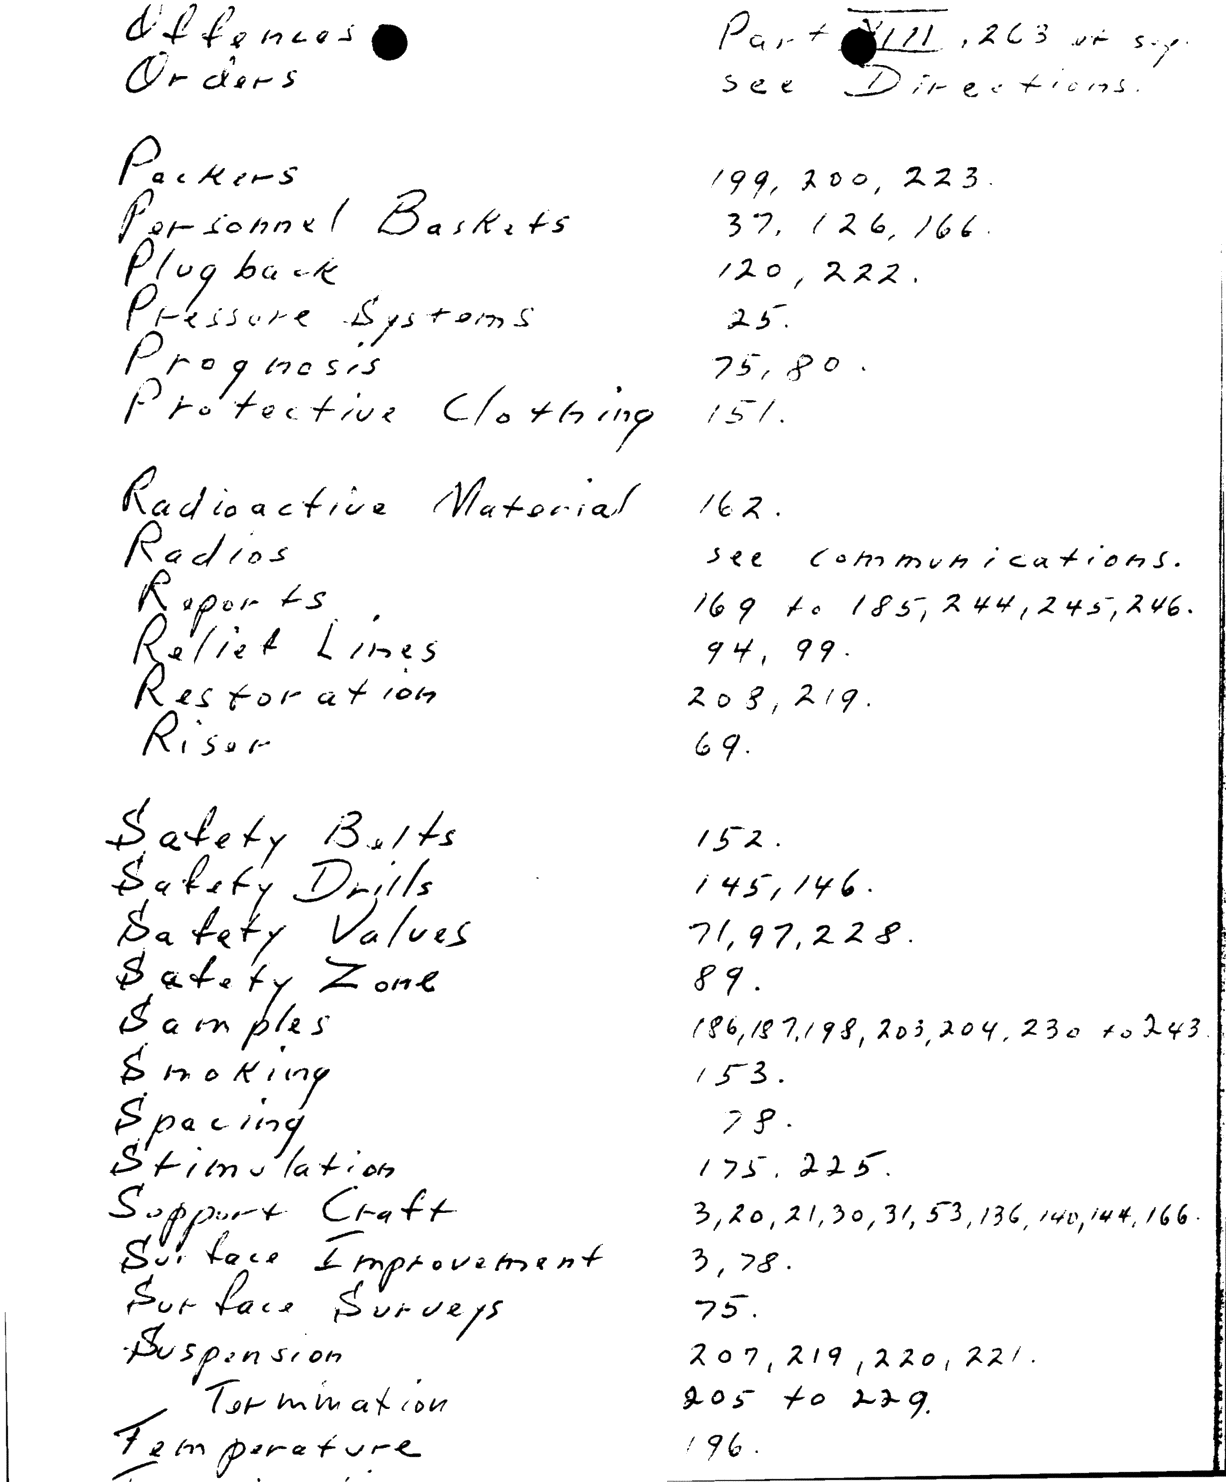 Offences Part VIII, 263 et seq.
Orders see Directions.
Packers 199, 200, 223.
Personnel Baskets 37, 126, 166.
Plugback 120, 222.
Pressure Systems 25.
Prognosis 75, 80.
Protective Clothing 151.
Radioactive Material 162.
Radios see communications.
Reports 169 to 185, 244, 245, 246.
Relief Lines 94, 99.
Restoration 208, 219.
Riser 69.
Safety Belts 152.
Safety Drills 145, 146.
Safety Values 71, 97, 228.
Safety Zone 89.
Samples 186, 187, 198, 203, 204, 230 to 243.
Smoking 153.
Spacing 78.
Stimulation 175, 225.
Support Craft 3, 20, 21, 30, 31, 53, 136, 140, 144, 166.
Surface Improvement 3, 78.
Surface Surveys 75.
Suspension 207, 219, 220, 221.
Termination 205 to 229.
Temperature 196.